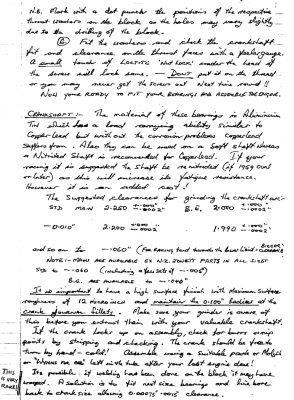 N.B. Mark with a dot punch the positions of the respective
thrust washers on the block as the holes may vary slightly
due to the drilling of the block.
⑥ Fit the washers and check the crankshaft
float and clearance on the thrust faces with a feeler gauge.
A small touch of LOCTITE 'NUT LOCK' under the head of
the screw will lock same. — DON'T put it on the thread
or you may never get the screw out next time round!!
NOW YOUR READY TO FIT YOUR BEARINGS AND ASSEMBLE THE ENGINE.
CRANKSHAFT :— The material of these bearings is Aluminium
Tin which has a load carrying ability similar to
Copper-lead but without the corrosion problems copperlead
suffers from. Also they can be used on a soft shaft whereas
a Nitrided Shaft is recommended for Copperlead. If your
racing it is suggested the shaft be renitrided (if 1959 Oval
or later) as this will increase its fatigue resistance.
However it is an added cost!
The Suggested clearances for grinding the crankshaft are:—
STD MAIN 2.250 B.E. 2.000
—0.010" 2.240 1.990
and so on to —.060"
NOTE:— MAINS ARE AVAILABLE EX N.Z. JOINERY PARTS IN ALL SIZES
STD to —.060 (including a few sets of —.005")
B.E. ARE AVAILABLE to —.040"
It is important to have a high surface finish with Maximum Surface
roughness of 12 microinch and maintain the 0.100" Radius at the
crank journal fillets. Make sure your grinder is aware of
this before you entrust them with your valuable crankshaft.
If the crank locks up on assembly, check for burrs or high
points by stripping and checking. The crank should be free to
turn by hand — cold! Assemble using a suitable paste or Molyslip
or left in the tube after your last engine due!
Its possible if welding has been done on the block it may have
warped. A solution is to fit next size bearings and line bore
back to crank size allowing 0.00075"-.0015" clearance.
THIS
IS VERY
RARE!